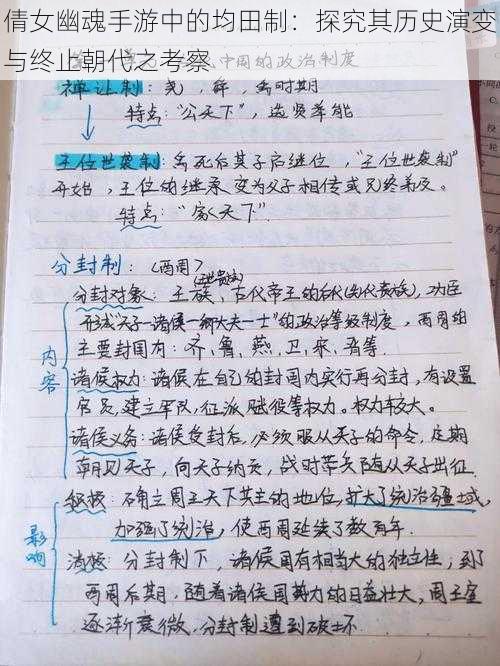 倩女幽魂手游中的均田制：探究其历史演变
与终止朝代之考察
中国的政治制度
禅让制：尧，舜，禹时期
特点：“公天下”，选贤举能
王位世袭制：禹死后其子启继位，“王位世袭制”
开始，王位的继承变为父子相传或兄终弟及。
特点：“家天下”.
分封制：（西周）
分封对象：王族、古代帝王的后代(先代贵族)，功臣
形成“天子-诸侯-卿大夫-士”的政治等级制度，西周的
主要封国有：齐、鲁、燕、卫、宋、晋等.
内容
诸侯权力：诸侯在自己的封国内实行再分封，有设置
官员，建立军队，征派赋役等权力。权力较大。
诸侯义务：诸侯受封后，必须服从天子的命令，定期
朝见天子，向天子纳贡，战时带兵随从天子出征.
影响
积极：确立周王天下共主的地位，扩大了统治疆域，
加强了统治，使西周延续了数百年.
消极：分封制下，诸侯国有相当大的独立性；到了
西周后期，随着诸侯国势力的日益壮大，周王室
逐渐衰微，分封制遭到破坏.